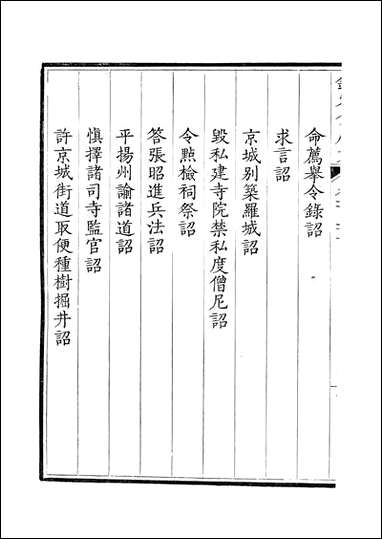 命薦舉令錄詔
求言詔
京城别築羅城詔
毀私建寺院禁私度僧尼詔
令㸃檢祠祭詔
答張昭進兵法詔
平揚州諭諸道詔
慎擇諸司寺監官詔
許京城街道取便種樹掘井詔